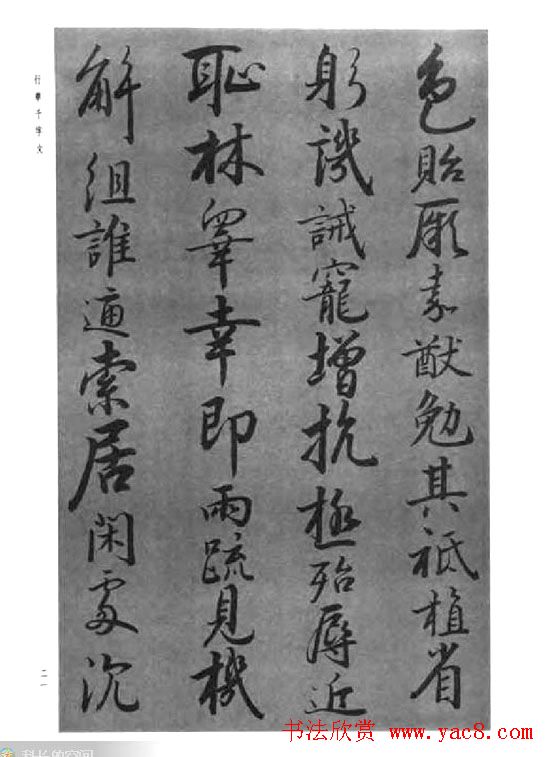 色貽厥嘉猷勉其祗植省
躬譏誡寵增抗極殆辱近
恥林睾幸即兩疏見機
解組誰逼索居閑處沉
行書千字文
二一
书法欣赏 www.yac8.com
科长的空间